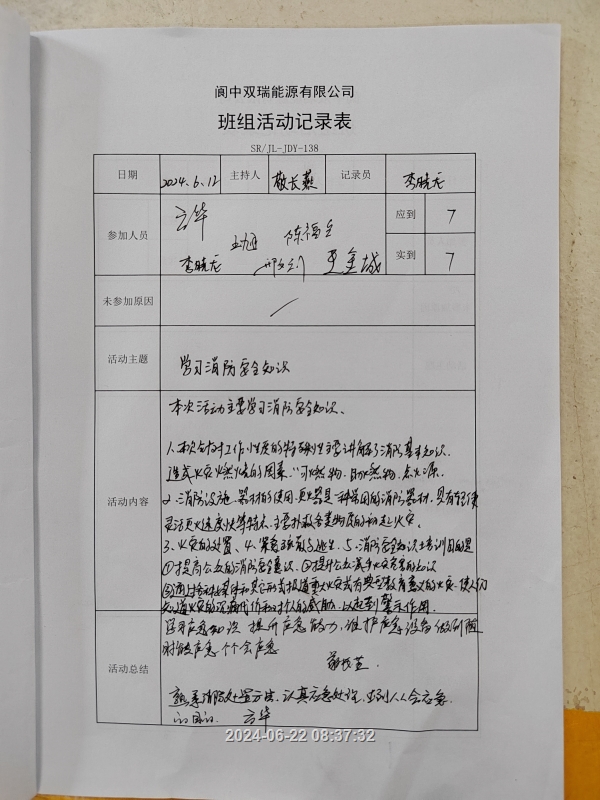 阆中双瑞能源有限公司
班组活动记录表
SR/JL-JDY-138
日期 2024.6.12 主持人 敬长燕 记录员 李晓龙
参加人员 应到 7
实到 7
未参加原因 /
活动主题 学习消防安全知识
活动内容
本次活动主要学习消防安全知识、
1、本次针对工作性质的特殊性主要讲解了消防基本知识.
造成火灾燃烧的因素:可燃物、助燃物、点火源.
2、消防设施、器材的使用、灭火器是一种常用的消防器材,具有轻便
灵活灭火速度快等特点、主要扑救各类物质的初起火灾.
3、火灾的处置、4、紧急疏散与逃生、5、消防安全知识培训目的是
①提高公众的消防安全意识、②提升公众减少火灾危害的知识
火灾、使人们
知道火灾的 和对人的威胁、以起到警示作用.
活动总结
学习应急知识 提升应急能力,维护应急设备 做到随
时能应急 个个会应急
熟悉消防处置方法、认真应急处理、达到人人会应急
的目的.
2024-06-22 08:37:32